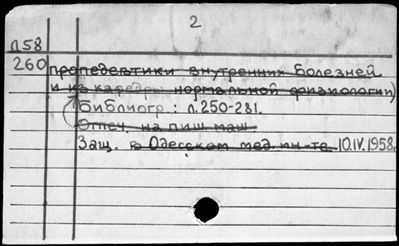 2
Л58
260 пропедевтики внутренних болезней
и из кафедры нормальной физиологии)
Библиогр.: л. 250-281.
Отпеч. на пиш. маш.
Защ. в Одесском мед. ин-те 10.IV.1958.